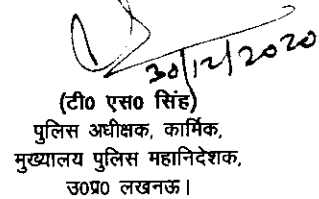 30/12/2020
(टी0 एस0 सिंह)
पुलिस अधीक्षक, कार्मिक,
मुख्यालय पुलिस महानिदेशक,
उ0प्र0 लखनऊ।